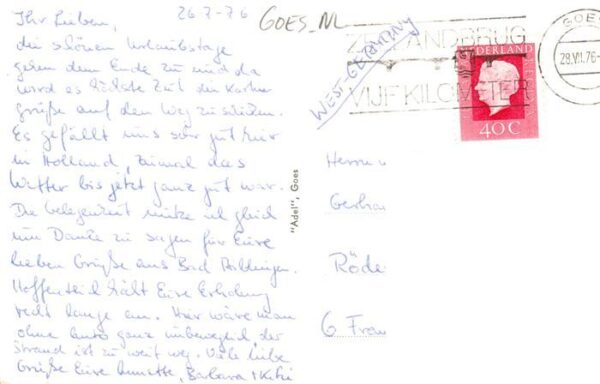 Ihr Lieben, 26 7 - 76 GOES_NL
die schönen Urlaubstage
gehen dem Ende zu und da
wird es höchste Zeit die Karten
grüße auf den Weg zu schicken.
Es gefällt uns sehr gut hier
in Holland, zumal das
Wetter bis jetzt ganz gut war.
Die Gelegenheit nütze ich gleich
um Danke zu sagen für Eure
lieben Grüße aus Bad
Hoffentlich hält Eure Erholung
recht lange an. Hier wäre man
ohne Auto ganz unbeweglich, der
Strand ist zu weit weg. Viele liebe
Grüße Eure Annette, Barbara +
WEST-GERMANY
ZEELANDBRUG
VIJF KILOMETER
NEDERLAND
40 C
GOES
28.VII.76
"Adel", Goes
Herrn u
Gerhar
Röde
6 Fran